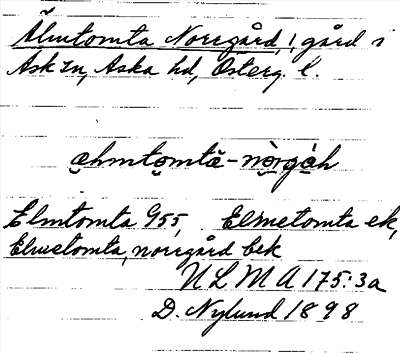 Älmtomta Norrgård, 1 gård i
Ask sn, Aska hd, Österg. l.
ęhmtǫmtă-nòrgǫ́h
Elmtomta 955, Elmetomta ek,
Elmetomta, norrgård bek
ULMA 175:3a
D. Nylund 1898